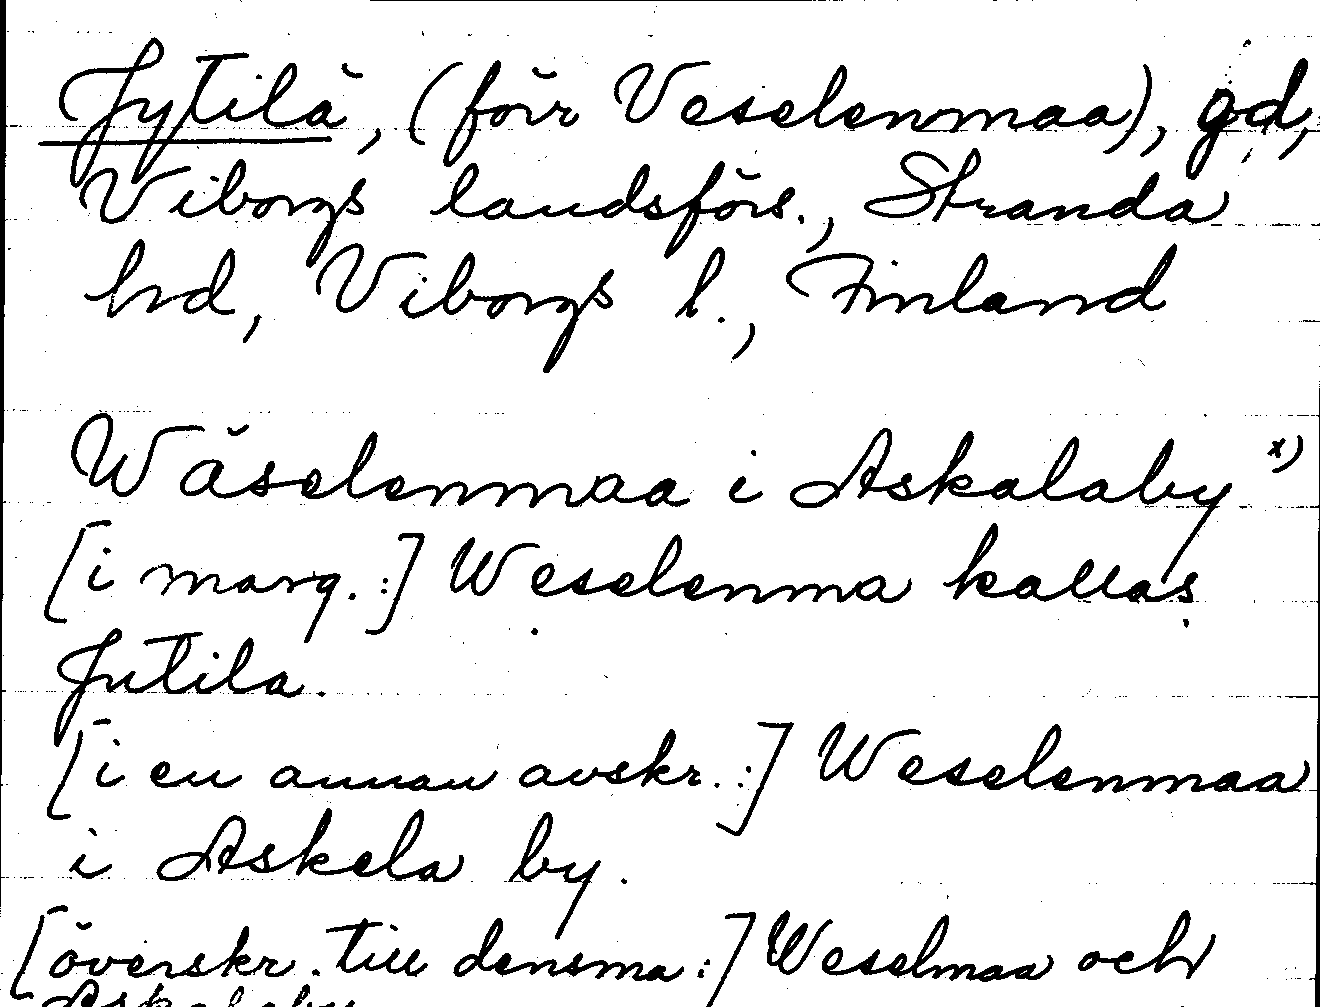 Jytilä, (förr Veselenmaa), gd,
Viborgs landsförs., Stranda
hd, Viborgs l., Finland
Wäselenmaa i Askalaby x)
[i marg.:] Weselenma kallas
Jutila.
[i en annan avskr.:] Weselenmaa
i Askela by.
[överskr. till densma:] Weselmaa och
Askalaby